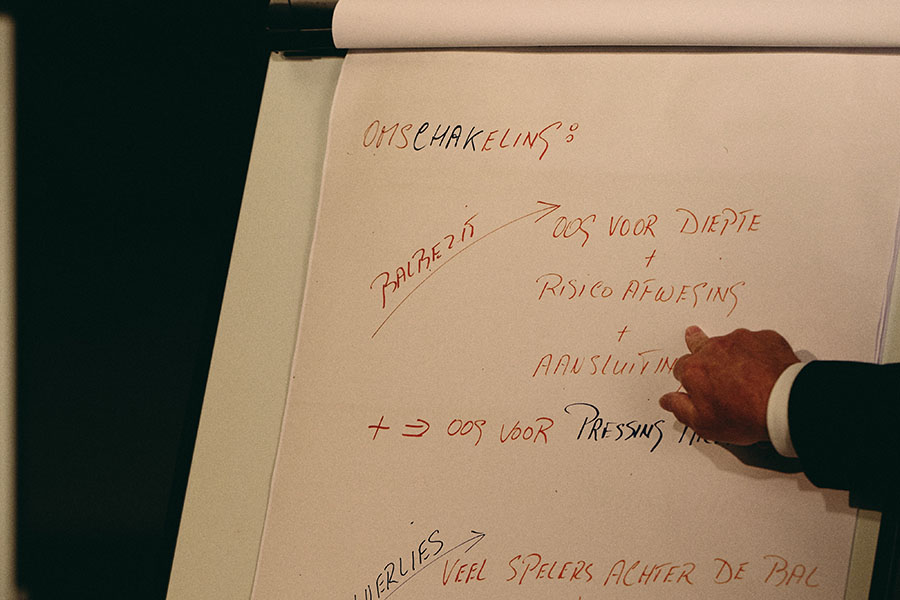 OMSCHAKELING:
BALBEZIT
OOG VOOR DIEPTE
+
RISICO AFWEGING
+
+ ⇒ OOG VOOR PRESSING
VEEL SPELERS ACHTER DE BAL